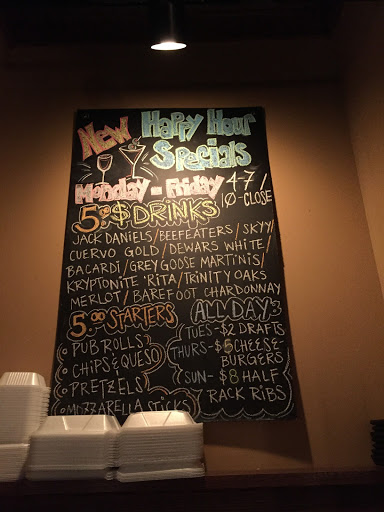 New Happy Hour
Specials
Monday - Friday 4-7/
10-CLOSE
5.00$ DRINKS
JACK DANIELS/BEEFEATERS/SKYY/
CUERVO GOLD/DEWARS WHITE/
BACARDI/GREY GOOSE MARTINIS/
KRYPTONITE 'RITA/TRINITY OAKS
MERLOT/BAREFOOT CHARDONNAY
5.00 STARTERS
PUB ROLLS
CHIPS & QUESO
PRETZELS
MOZZARELLA STICKS
ALL DAY
TUES-$2 DRAFTS
THURS-$5 CHEESE-
BURGERS
SUN-$8 HALF
RACK RIBS